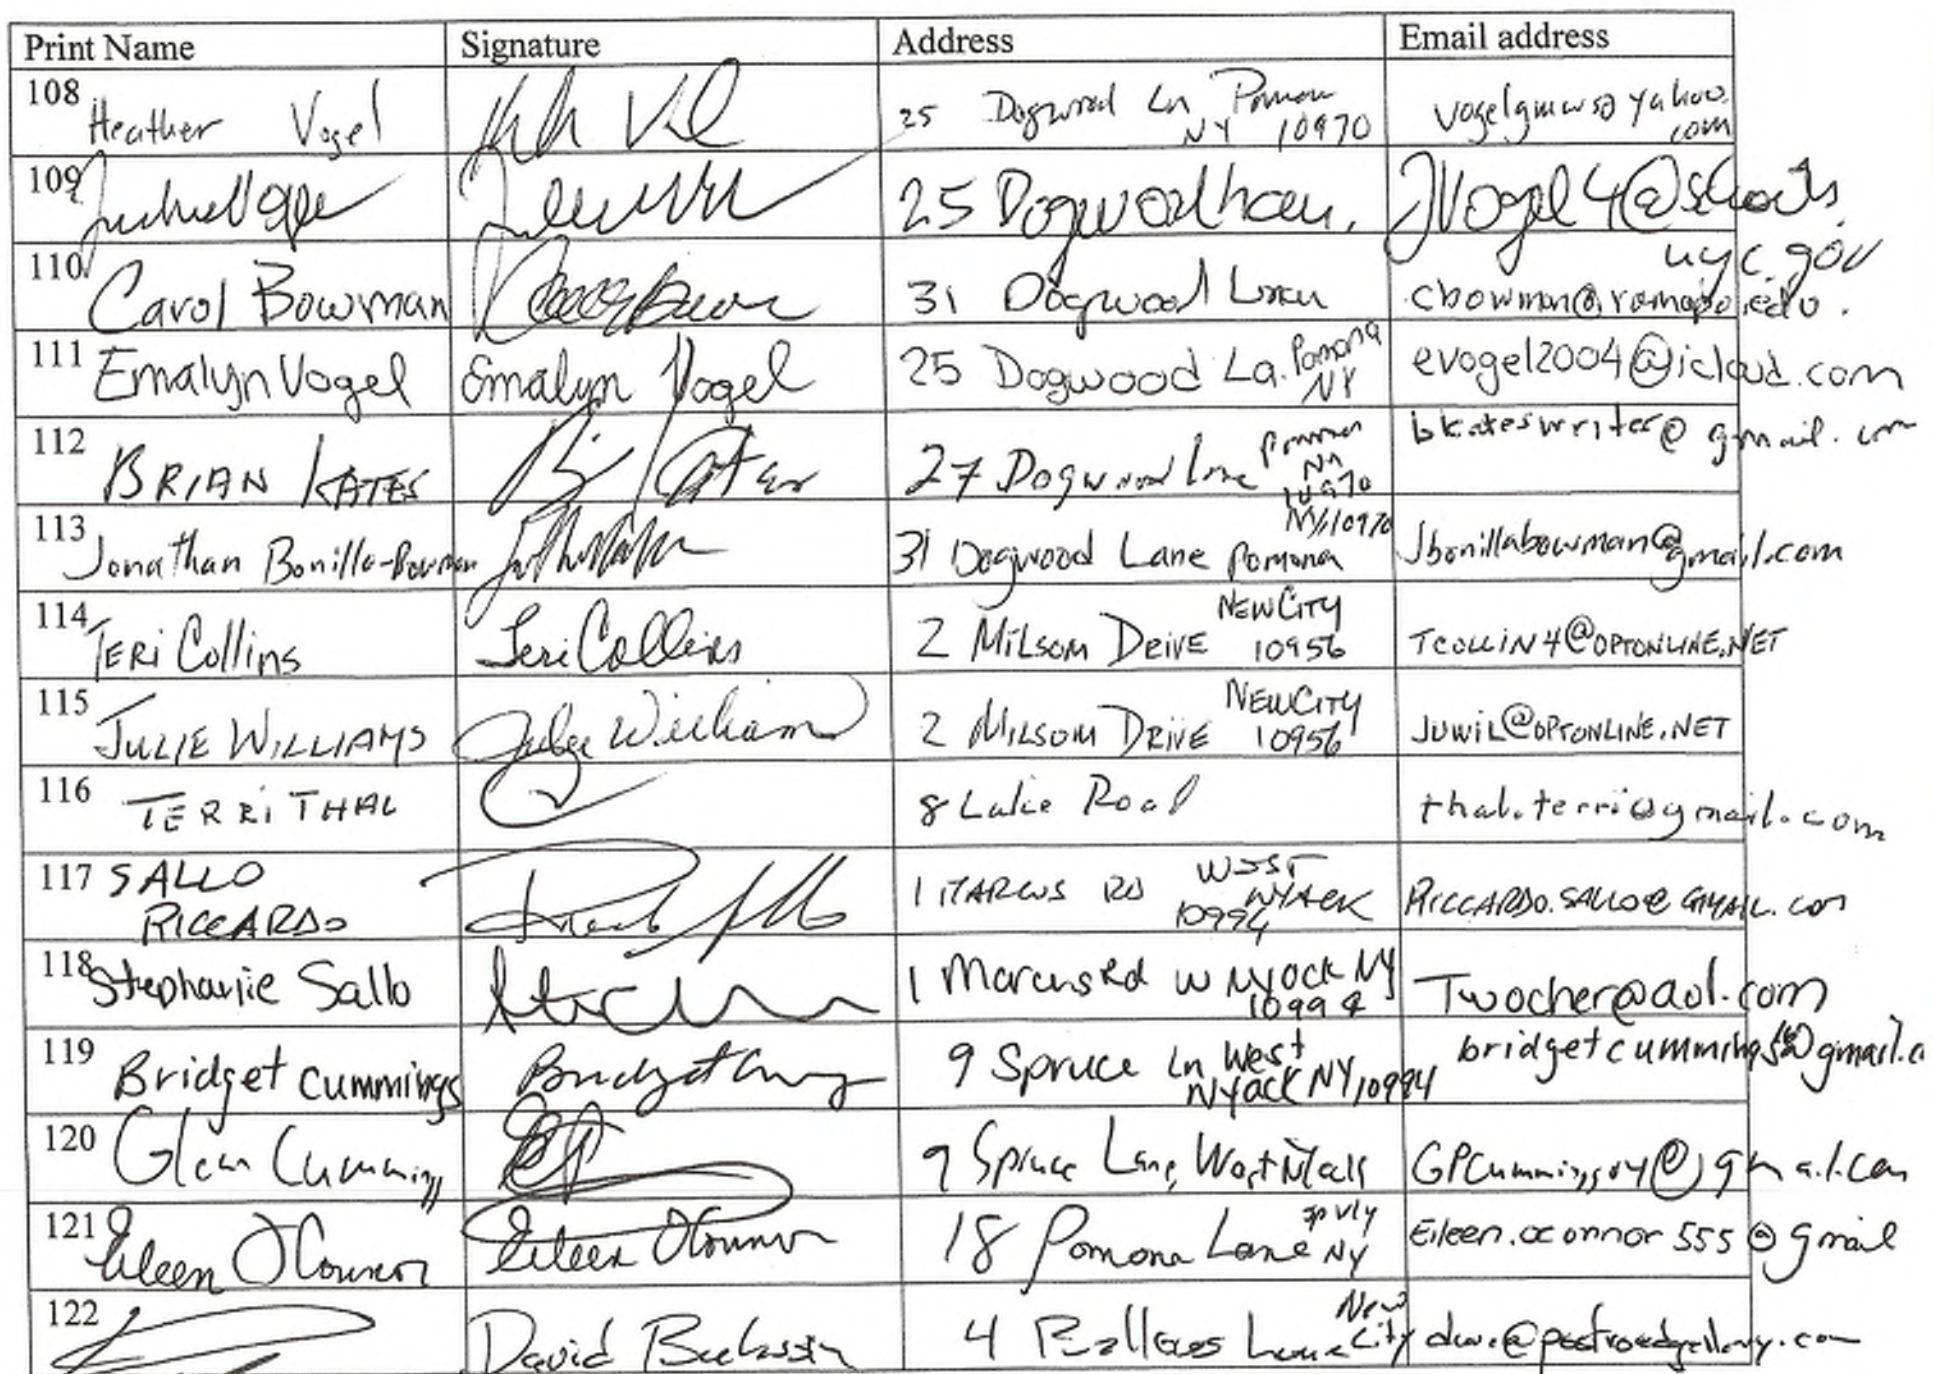 Print Name Signature Address Email address
108 Heather Vogel 25 Dogwood Ln Pomona NY 10970 vogelgmws@yahoo.com
109 25 Dogwood JVogel4@schools.nyc.gov
110 Carol Bowman 31 Dogwood Lane cbowman@ramapo.edu.
111 Emalyn Vogel Emalyn Vogel 25 Dogwood La. Pomona NY evogel2004@icloud.com
112 BRIAN KATES 27 Dogwood Lane Pomona 10970 bkateswriter@gmail.com
113 Jonathan Bonilla-Bowman 31 Dogwood Lane Pomona NY, 10970 Jbonillabowman@gmail.com
114 TERi Collins Teri Collins 2 MiLSom DRIVE NEW CITY 10956 TCOLLIN4@OPTONLINE.NET
115 JULIE WILLIAMS Julie Williams 2 MILSOM DRIVE NEW CITY 10956 JUWIL@OPTONLINE.NET
116 TERRi THAL 8 Lake Road thal.terri@gmail.com
117 SALLO RICCARDO 1 MARCUS RD WEST NYACK 10994 RICCARDO.SALLO@GMAIL.com
118 Stephanie Sallo 1 Marcus Rd W NyAck NY 10994 Twocher@aol.com
119 Bridget Cummings Bridget 9 Spruce Ln West NYack NY 10994 bridgetcummings8@gmail.c
120 Glen Cummings 9 Spruce Lane, West Nyack GPCummings04@gmail.com
121 Eileen O'Connor Eileen O'Connor 18 Pomona Lane Sp Vly NY Eileen.oconnor555@gmail
122 David 4 Lane New City dave@postroadgallery.com